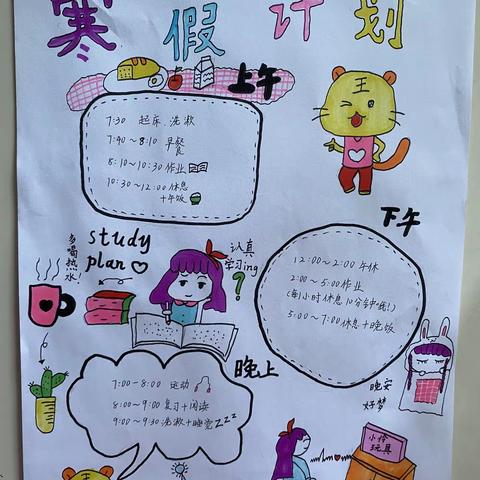 寒假计划
上午
7:30 起床、洗漱
7:40~8:10 早餐
8:10~10:30 作业
10:30~12:00 休息
+午饭
王
下午
12:00~2:00 午休
2:00~5:00 作业
(每小时休息10分钟哦!)
5:00~7:00 休息+晚饭
多喝热水!
study
plan
认真
学习ing
?
晚上
7:00-8:00 运动
8:00~9:00 复习+阅读
9:00~9:30 洗漱+睡觉ZZZ
晚安
好梦
小件
玩具